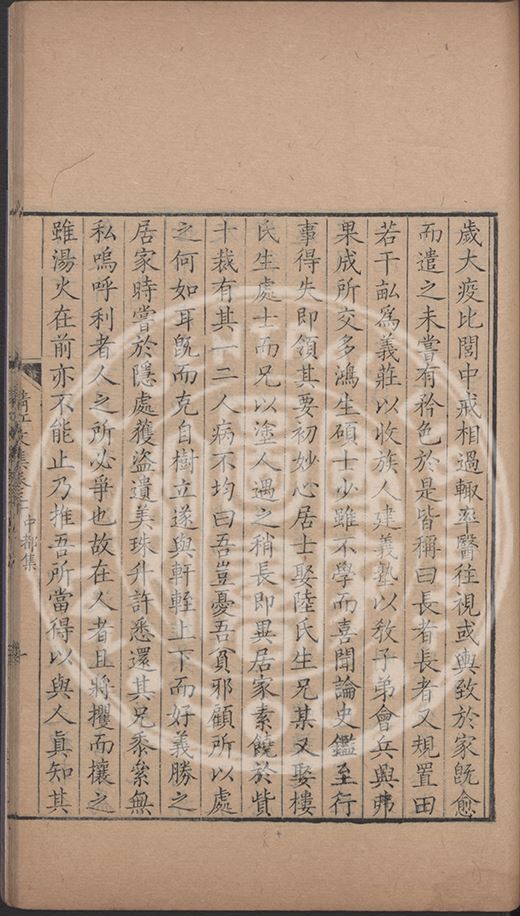 歲大疫比閭中戒相過輙率醫往視或輿致於家旣愈
而遣之未嘗有矜色於是皆稱曰長者長者又規置田
若干畝爲義莊以收族人建義塾以敎子弟會兵興弗
果成所交多鴻生碩士少雖不學而喜聞論史鑑至行
事得失即領其要初妙心居士娶陸氏生兄某又娶樓
氏生處士而兄以塗人遇之稍長即異居家素饒於貲
十裁有其一二人病不均曰吾豈憂吾貧邪顧所以處
之何如耳旣而克自樹立遂與軒輊上下而好義勝之
居家時嘗於隱處獲盜遺美珠升許悉還其兄黍絫無
私嗚呼利者人之所必爭也故在人者且將攫而攘之
雖湯火在前亦不能止乃推吾所當得以與人眞知其
清江文集卷三十 中都集